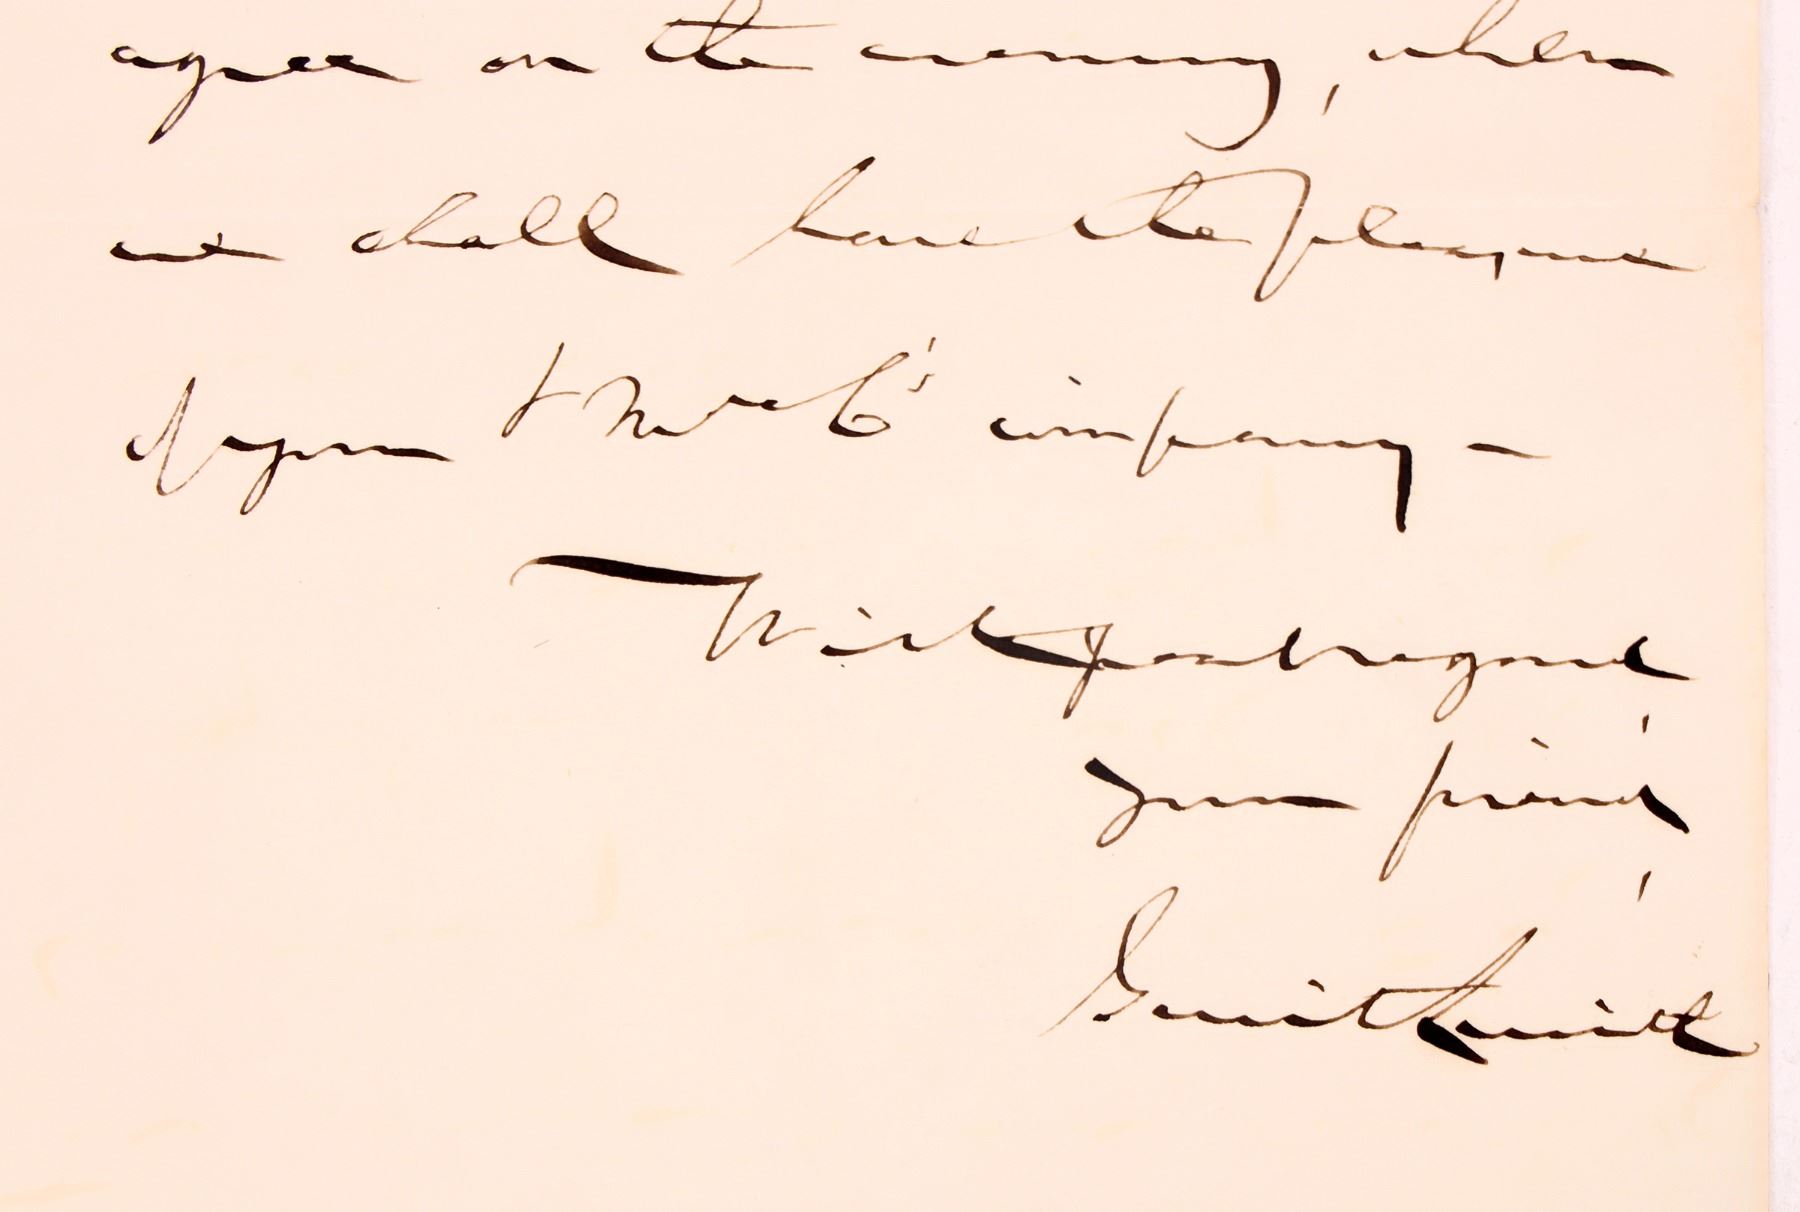 agree on the evening, when
we shall have the pleasure
of your & Mrs C's company -
With great regard
your friend
Gerrit Smith